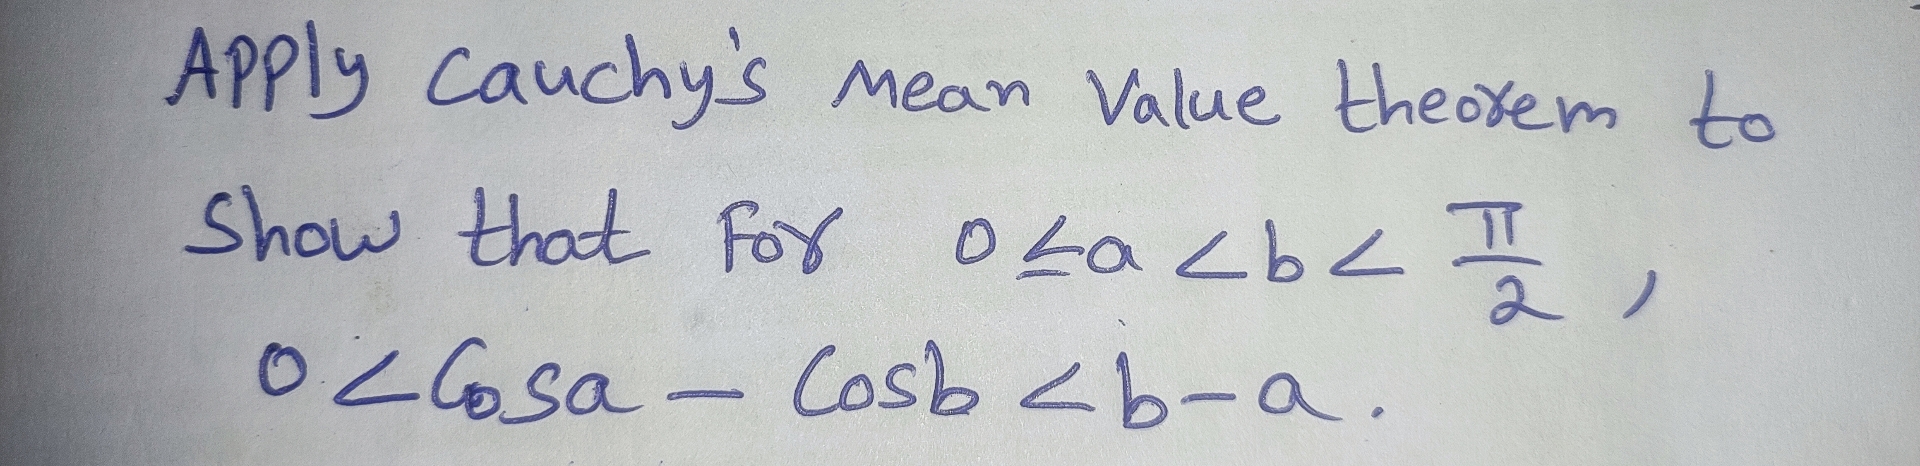 Apply Cauchy's Mean Value theorem to
Show that for 0 ≤ a < b < π/2 ,
0 < Cosa - Cosb < b - a .